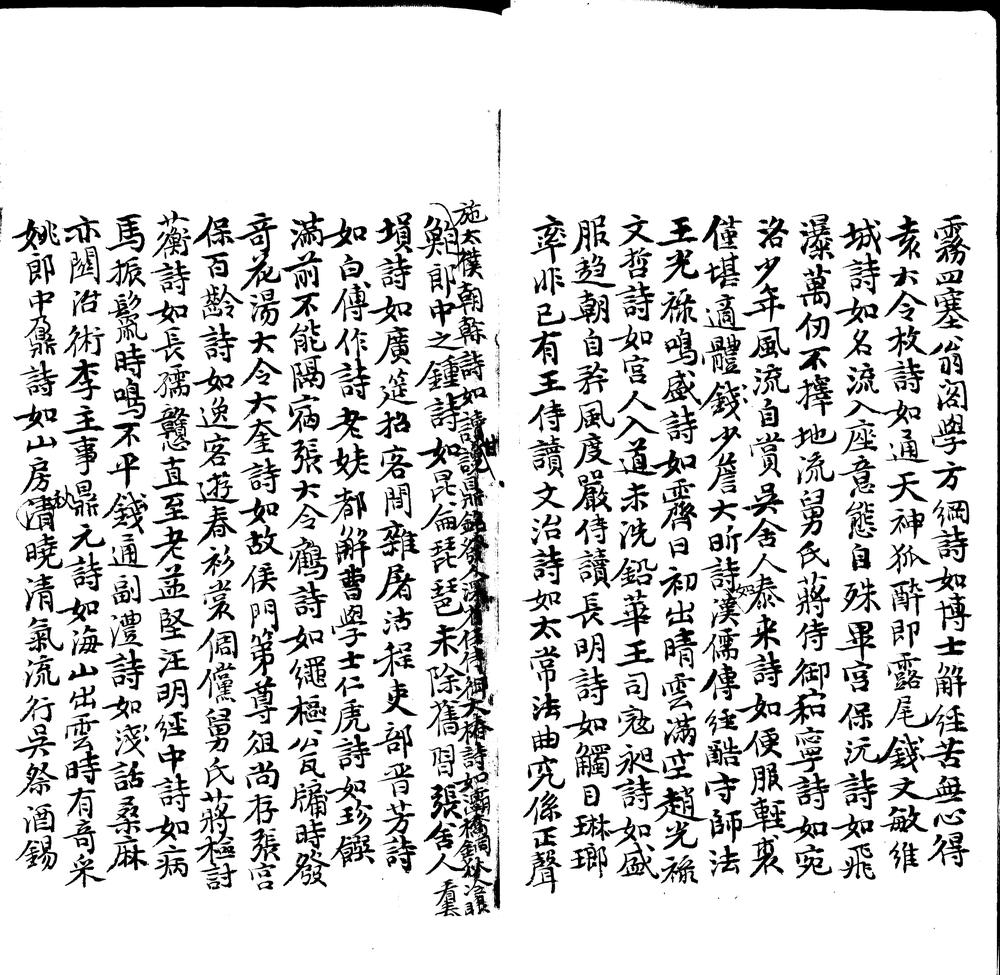 霧四塞翁閣學方綱詩如博士解經苦無心得
袁大令枚詩如通天神狐醉即露尾錢文敏維
城詩如名流入座意態自殊畢宮保沅詩如飛
瀑萬仞不擇地流舅氏蔣侍御和寧詩如宛
洛少年風流自賞吳舍人泰来詩如便服輕裘
僅堪適體錢少詹大昕詩如漢儒傳經酷守師法
王光祿鳴盛詩如霽日初出晴雲滿空趙光祿
文哲詩如宮人入道未洗鉛華王司寇昶詩如盛
服趋朝自矜風度嚴侍讀長明詩如觸目琳瑯
率非已有王侍讀文治詩如太常法曲究係正聲
施太僕朝幹詩如讀甘讒鼎銘任侍御大椿詩如灞橋銅狄冷眼看春
鮑郎中之鍾詩如昆侖琵琶未除舊習張舍人
塤詩如廣筵招客間雜屠沽程吏部晋芳詩
如白傅作詩老妓都解曹學士仁虎詩如珍饌
滿前不能隔宿張大令鶴詩如繩樞瓮牖時發
奇花湯大令大奎詩如故侯門第尊俎尚存張宮
保百齡詩如逸客遊春衫裳倜儻舅氏蔣檢討
蘅詩如長孺戇直至老益堅汪明經中詩如病
馬振鬣時鳴不平錢通副灃詩如淺話桑麻
亦關治術李主事鼎元詩如海山出雲時有奇采
姚郎中鼐詩如山房秋曉清氣流行吳祭酒錫